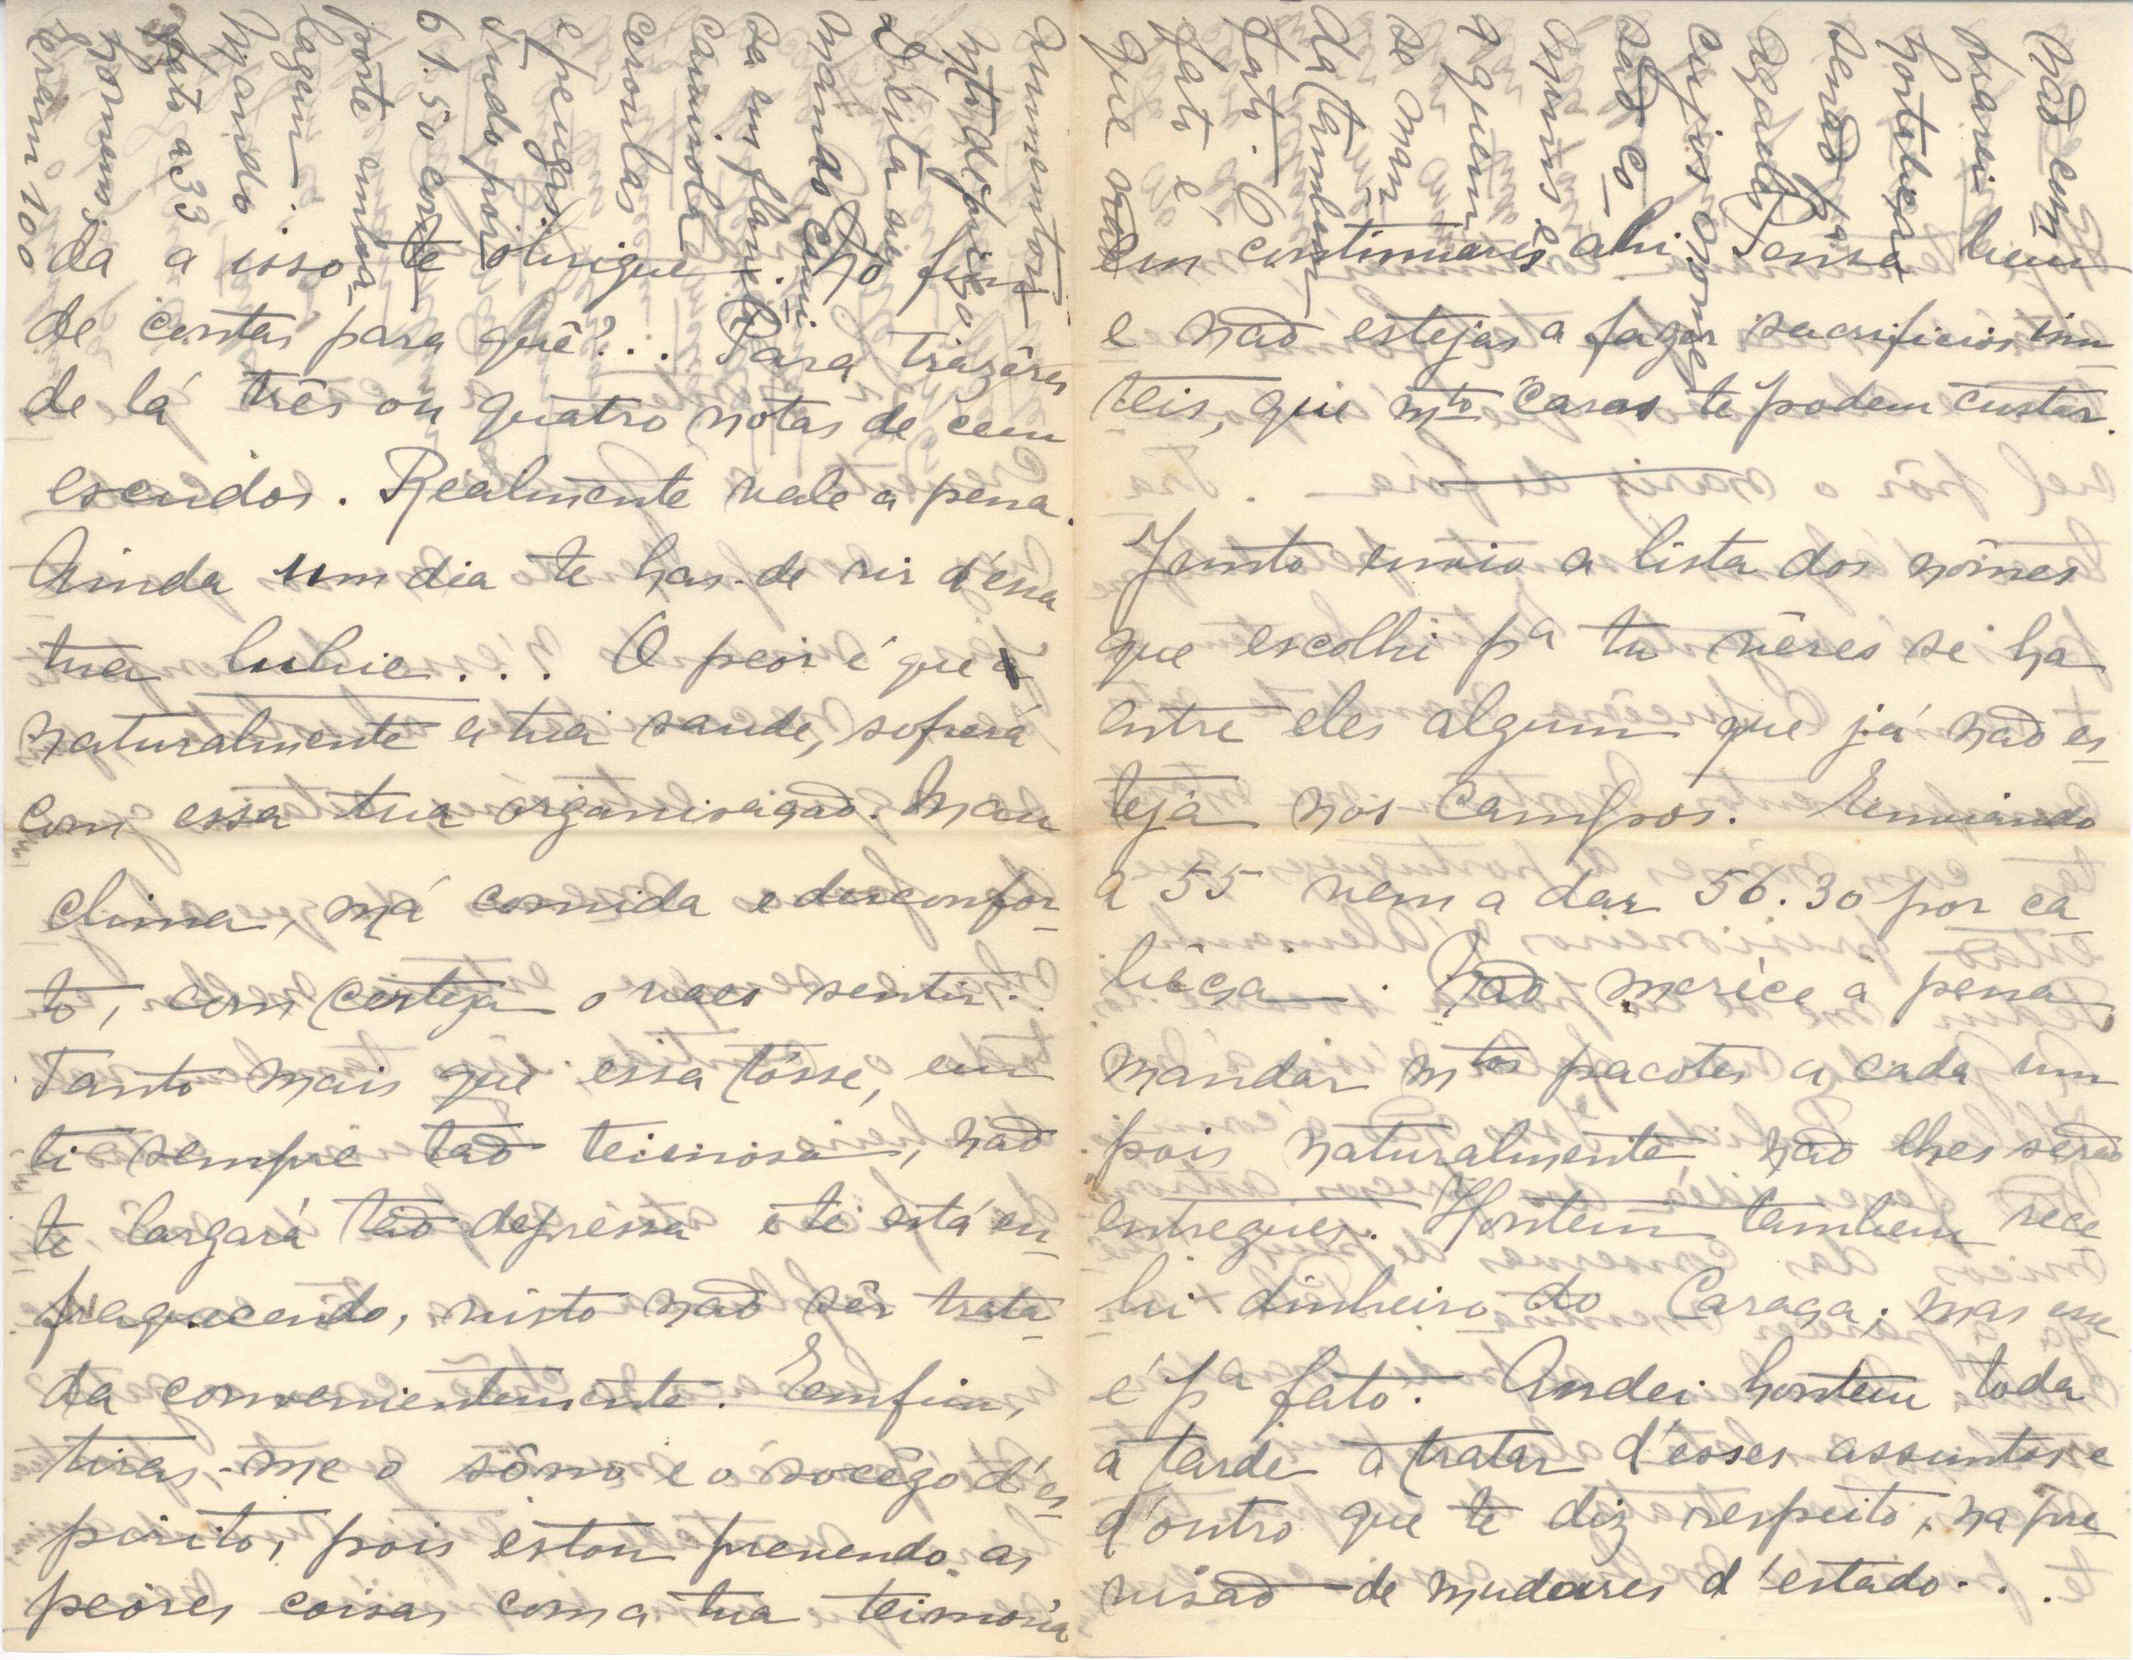 da a isso te obrigue. No fim
de contas para quê?... Para trazêres
de lá três ou quatro notas de cem
escudos. Realmente vale a pena.
Ainda um dia te has-de rir d'essa
tua lubie... O peor é que
naturalmente a tua saude, sofrerá
com essa tua organisação. Mau
clima, má comida e desconfor-
to, com certeza o vaes sentir.
Tanto mais que essa tósse, em
ti sempre tão teimosa, não
te largará tão depréssa e te está en-
fraquecendo, visto não sêr trata-
da convenientemente. Emfim,
tiras-me o sôno e o socêgo d'es-
pirito, pois estou prevendo as
peóres coisas com a tua teimosia
em continuares ahi. Pensa bem
e não estejas a fazer sacrificios inu-
teis, que mto caros te podem custar.
Junto envio a lista dos nômes
que escolhi pa tu vêres se ha
entre eles algum que já não es-
teja nos campos. Enviando
a 55 vem a dar 56.30 por ca-
bêça. Não meréce a pena
mandar mtos pacotes a cada um
pois naturalmente não lhes serão
entregues. Hontem tambem rece-
bi dinheiro do Caraça; mas esse
é pa fato. Andei hontem toda
a tarde a tratar d'esses assuntos e
d'outro que te diz respeito, na pre-
visão de mudares d'estado...
Não em-
brarei
hortaliça
senão pa
aqueles
cujos nomes
são co-
muns e
a quem
se man-
da tambem
fato. O
fato é
que
aumentou
mto de preço.
D'esta vez
mando cami-
sa em flanela
camisola
ceroulas
e peugas
tudo por
61.50 com
porte e emba-
lagem.
Mando
fato a 33
homens;
serem 100